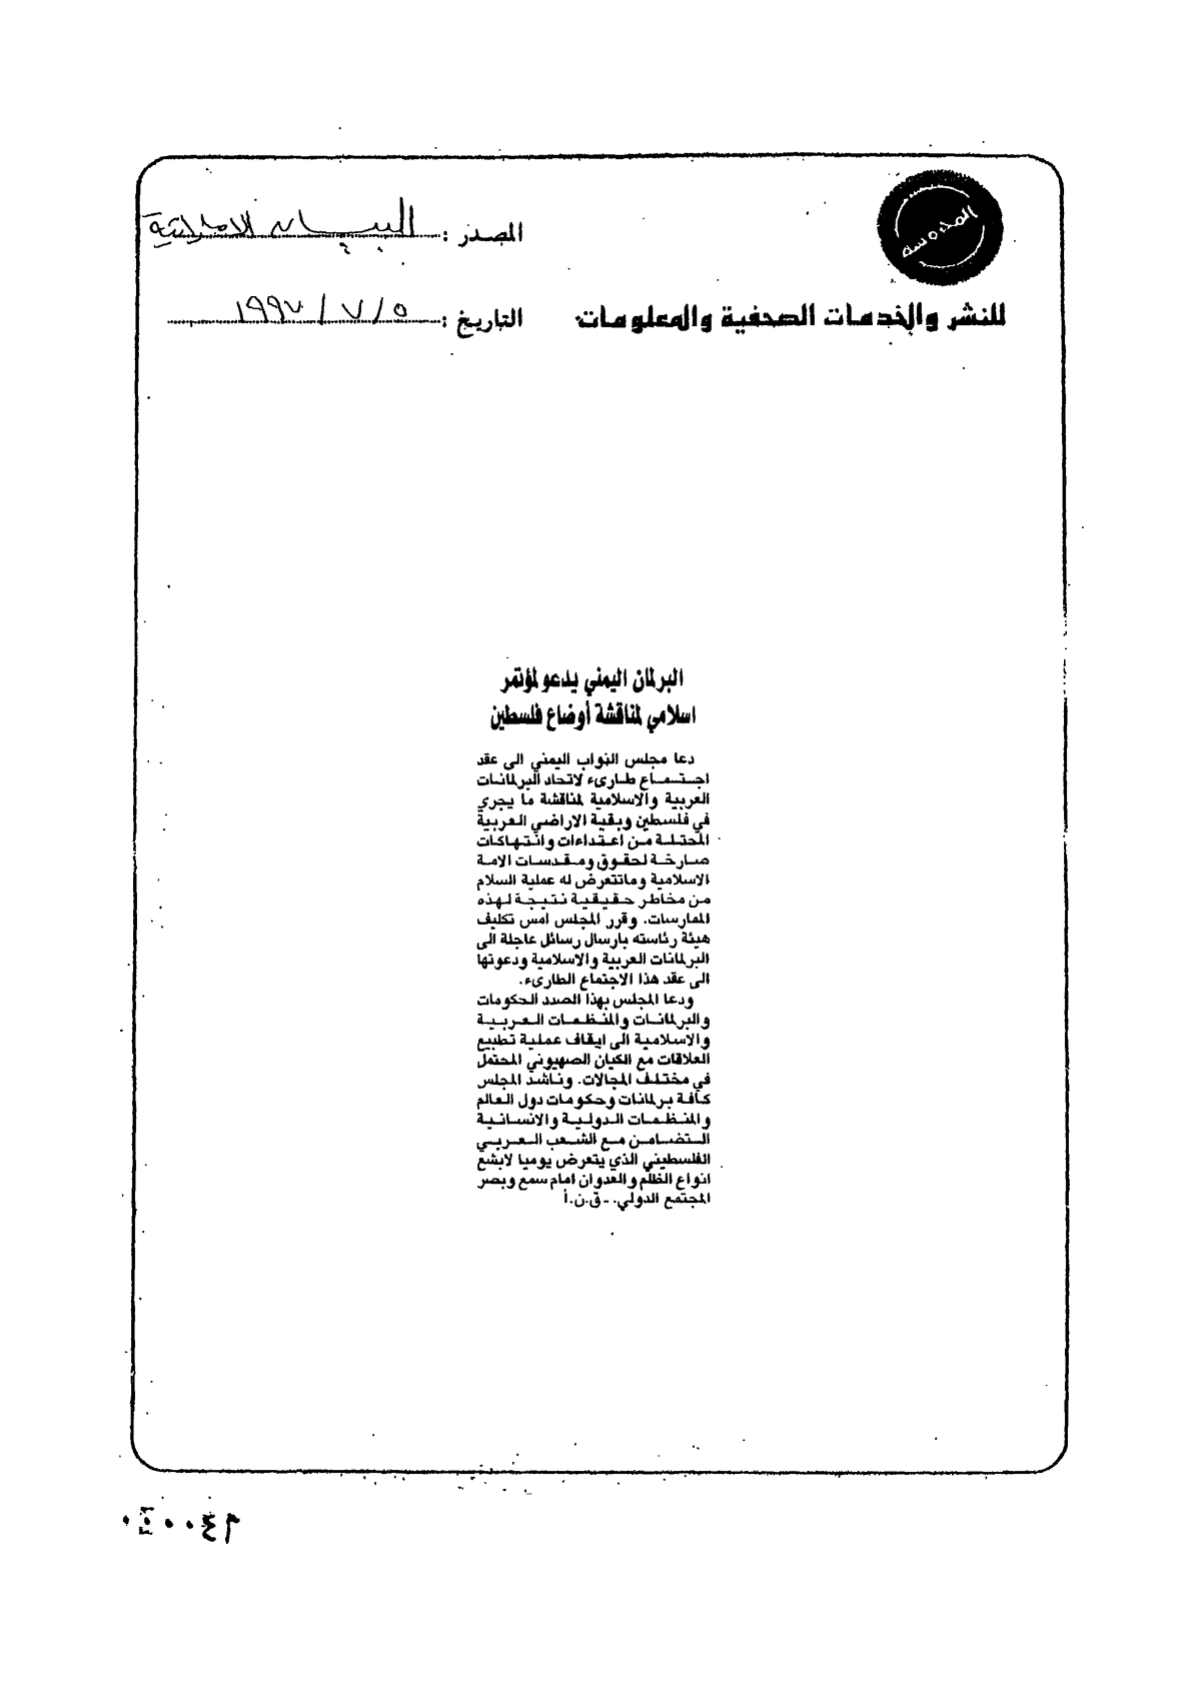 المدروسة
المصدر : البيان الاماراتية
للنشر والخدمات الصحفية والمعلومات
التاريخ : ٥ / ٧ / ١٩٩٧
البرلمان اليمني يدعو لمؤتمر
اسلامي لمناقشة أوضاع فلسطين
دعا مجلس النواب اليمني الى عقد
اجتماع طارىء لاتحاد البرلمانات
العربية والاسلامية لمناقشة ما يجري
في فلسطين وبقية الاراضي العربية
المحتلة من اعتداءات وانتهاكات
صارخة لحقوق ومقدسات الامة
الاسلامية وماتتعرض له عملية السلام
من مخاطر حقيقية نتيجة لهذه
الممارسات. وقرر المجلس امس تكليف
هيئة رئاسته بارسال رسائل عاجلة الى
البرلمانات العربية والاسلامية ودعوتها
الى عقد هذا الاجتماع الطارىء.
ودعا المجلس بهذا الصدد الحكومات
والبرلمانات والمنظمات العربية
والاسلامية الى ايقاف عملية تطبيع
العلاقات مع الكيان الصهيوني المحتل
في مختلف المجالات. وناشد المجلس
كافة برلمانات وحكومات دول العالم
والمنظمات الدولية والانسانية
التضامن مع الشعب العربي
الفلسطيني الذي يتعرض يوميا لابشع
انواع الظلم والعدوان امام سمع وبصر
المجتمع الدولي. ـ ق.ن.أ